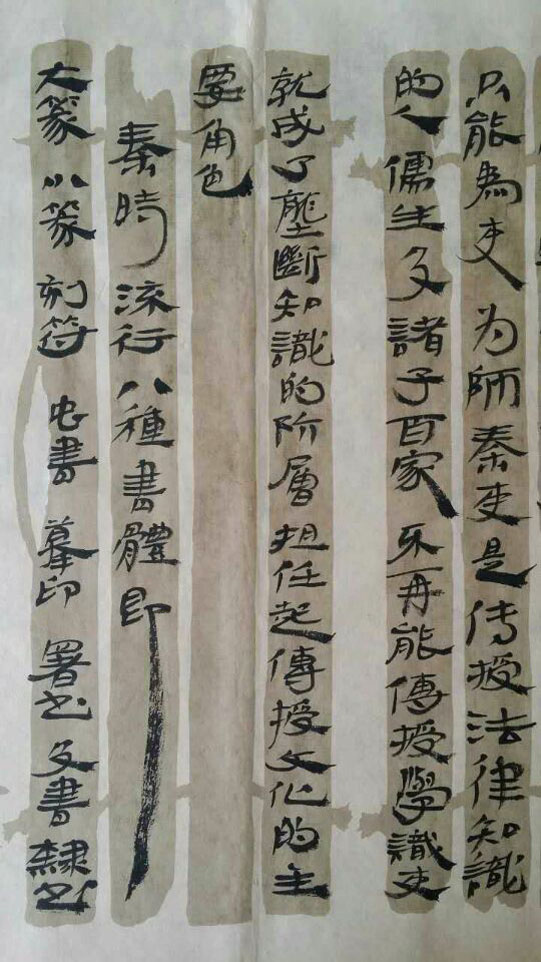 只能為吏 为师秦吏是传授法律知識
的人儒生及諸子百家 不再能傳授學識吏
就成了壟斷知識的阶層担任起傳授文化的主
要角色
秦時流行八種書體即
大篆 小篆 刻符 虫書 摹印 署书 殳書 隸书